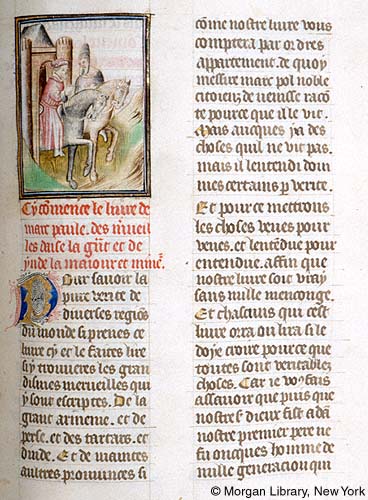 Cy cõmence le liure de
marc paule. des m̃ueil
les daise la gñt et de
ynde la maiour et mine᷑.
Pour sauoir la
pure verite de
diuerses regiõs
du monde si prenes ce
liure cy et le faites lire
si y trouueres les gran
dismes merueilles qui
y sont escriptes. De la
grant armenie. et de
perse. et des tartars. et
dinde. Et de maintes
autres prouinces si
cõme nostre liure vous
comptera par ordres
appartement. de quoy
messire marc pol noble
citoien de venisse racõ
te pource que il le vit.
Mais auques y a des
choses quil ne vit pas.
mais il lentendi dom
mes certains p verite.
Et pour ce mettrons
les choses veues pour
veues. et lentẽdue pour
entendue. affin que
nostre liure soit vray
sans nulle menconge.
Et chascuns qui cest
liure ora ou lira si le
doie croire pource que
toutes sont veritables
choses. Car ie vo9 fais
assauoir que puis que
nostres dieux fist adã
nostre premier pere ne
fu oncques homme de
nulle generacion qui
© Morgan Library, New York